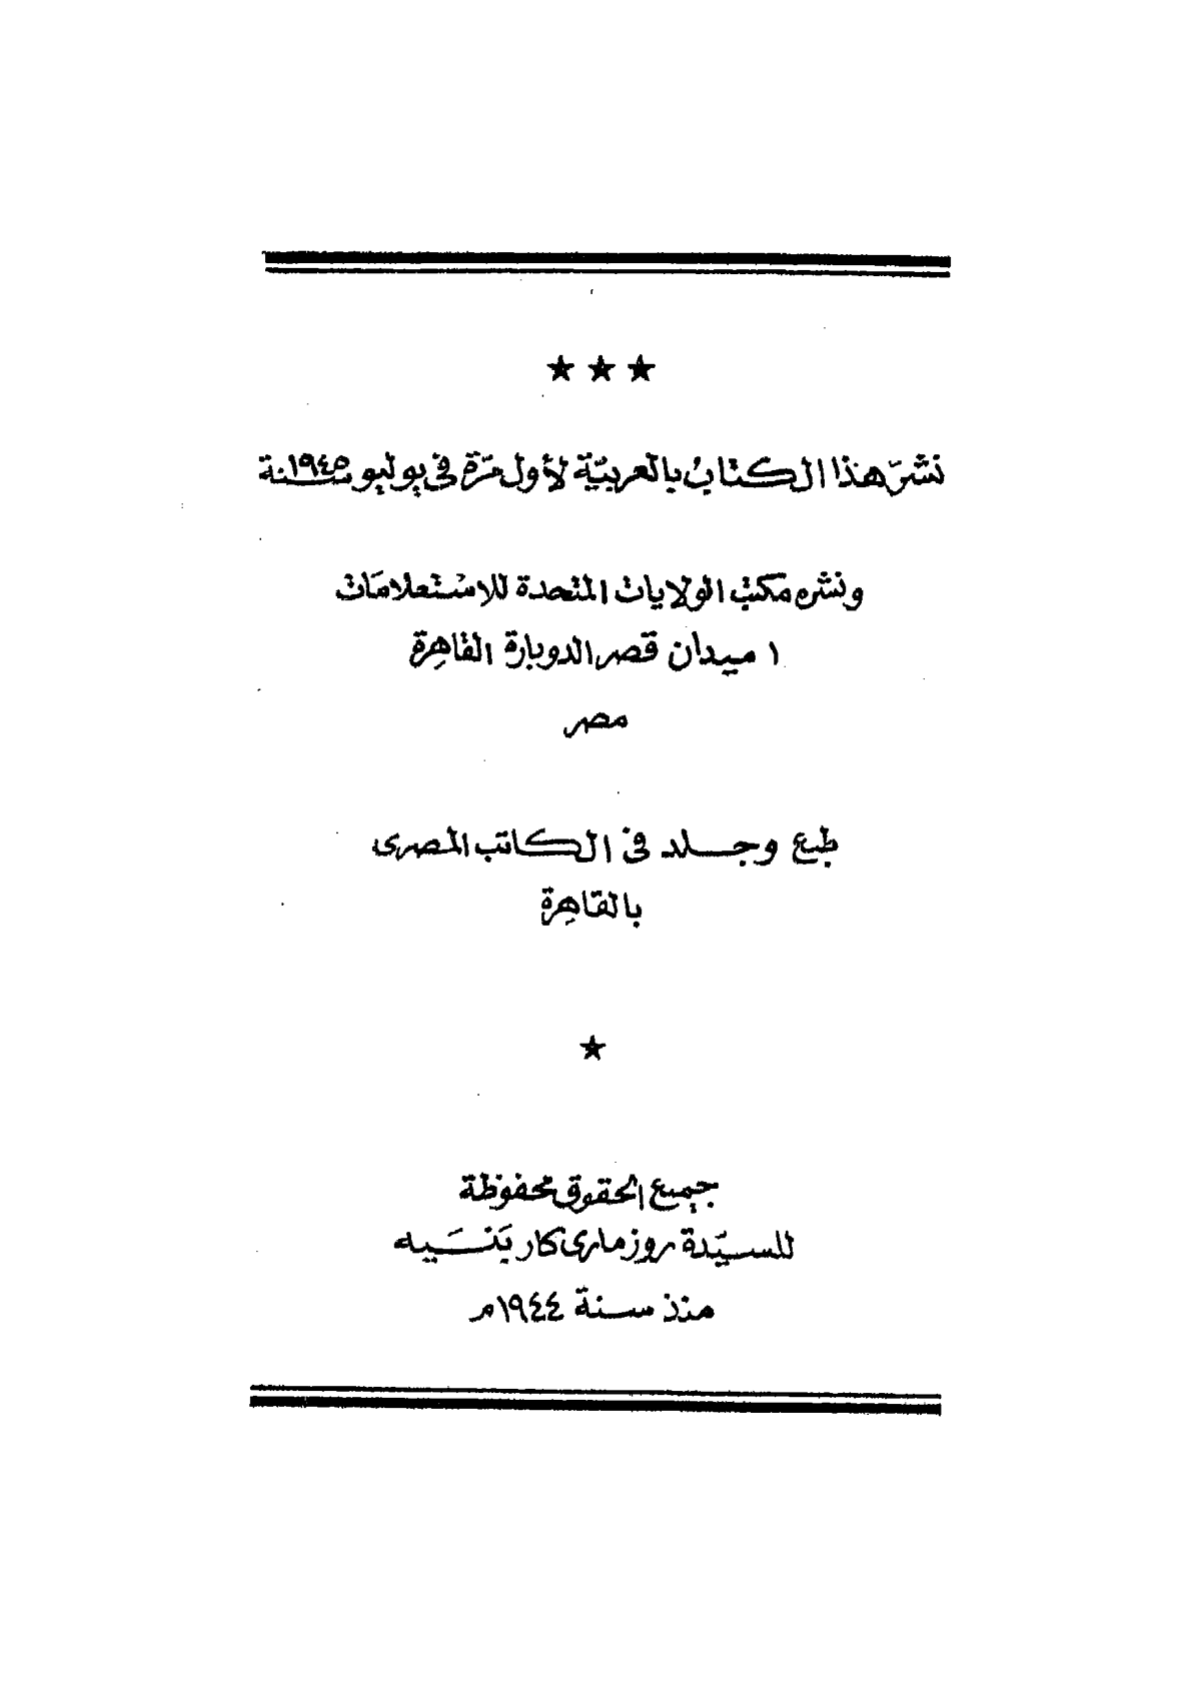 ★ ★ ★
نشر هذا الكتاب بالعربيّة لأول مرّة في يوليو سنة ١٩٤٥
ونشره مكتب الولايات المتحدة للاستعلامات
١ ميدان قصر الدوبارة القاهرة
مصر
طبع وجلد في الكاتب المصرى
بالقاهرة
★
جميع الحقوق محفوظة
للسيّدة روزمارى كاربَنتَييه
منذ سنة ١٩٤٤م